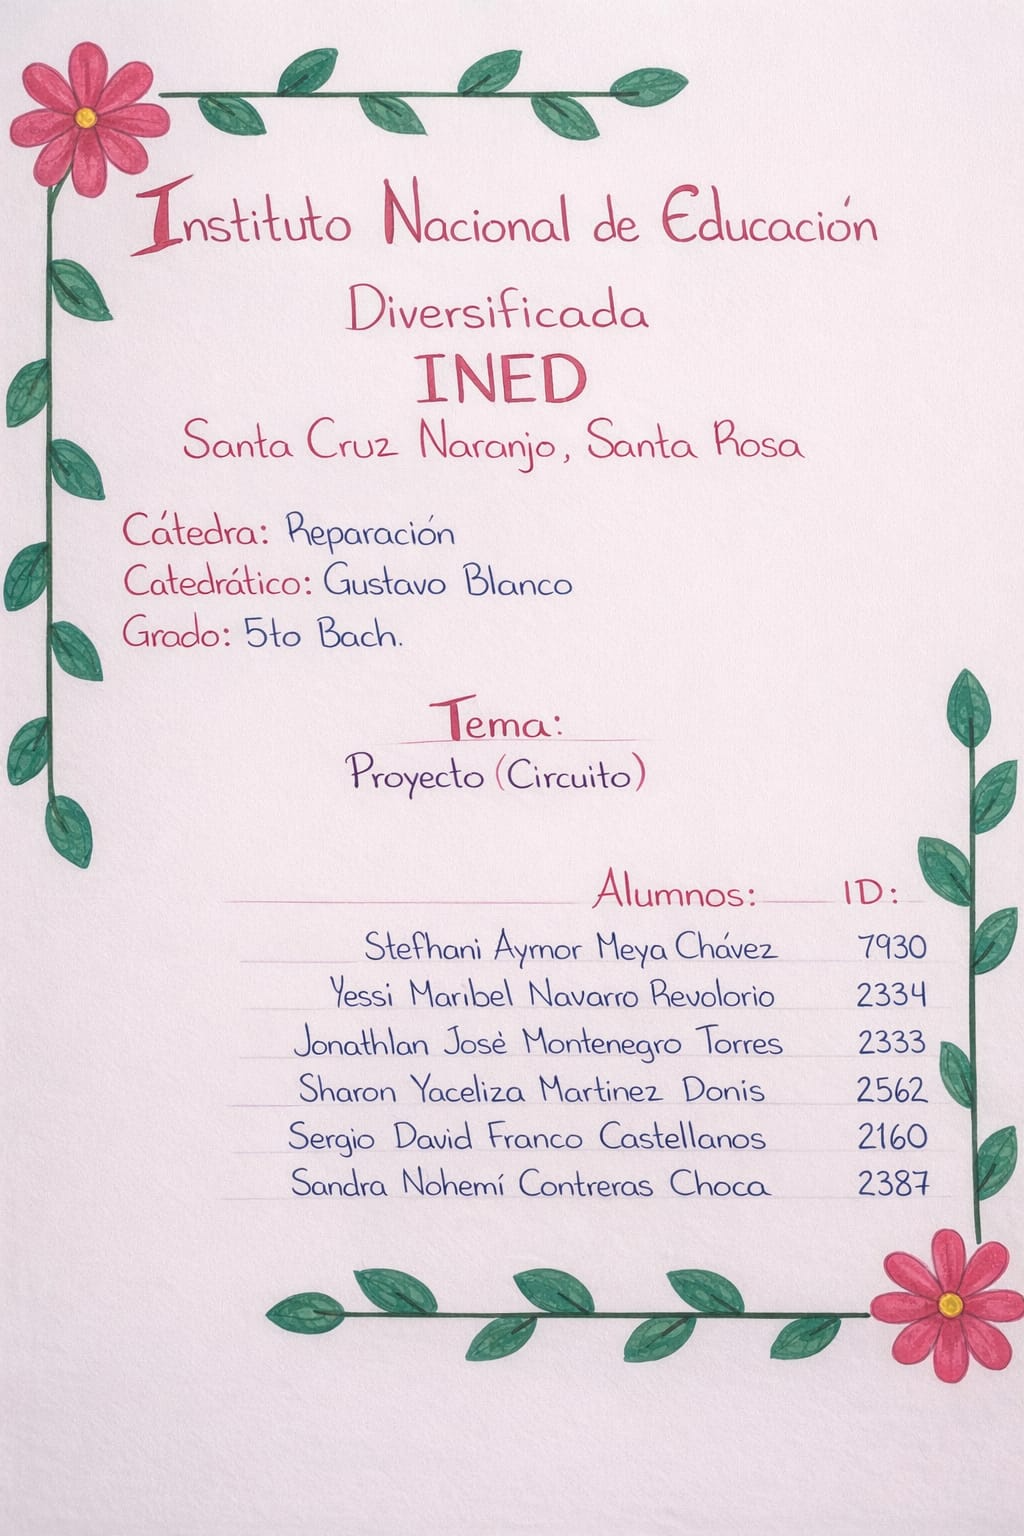 Instituto Nacional de Educación
Diversificada
INED
Santa Cruz Naranjo, Santa Rosa
Cátedra: Reparación
Catedrático: Gustavo Blanco
Grado: 5to Bach.
Tema:
Proyecto (Circuito)
Alumnos: ID:
Stefhani Aymor Meya Chávez 7930
Yessi Maribel Navarro Revolorio 2334
Jonathlan Josè Montenegro Torres 2333
Sharon Yaceliza Martinez Donis 2562
Sergio David Franco Castellanos 2160
Sandra Nohemí Contreras Choca 2387